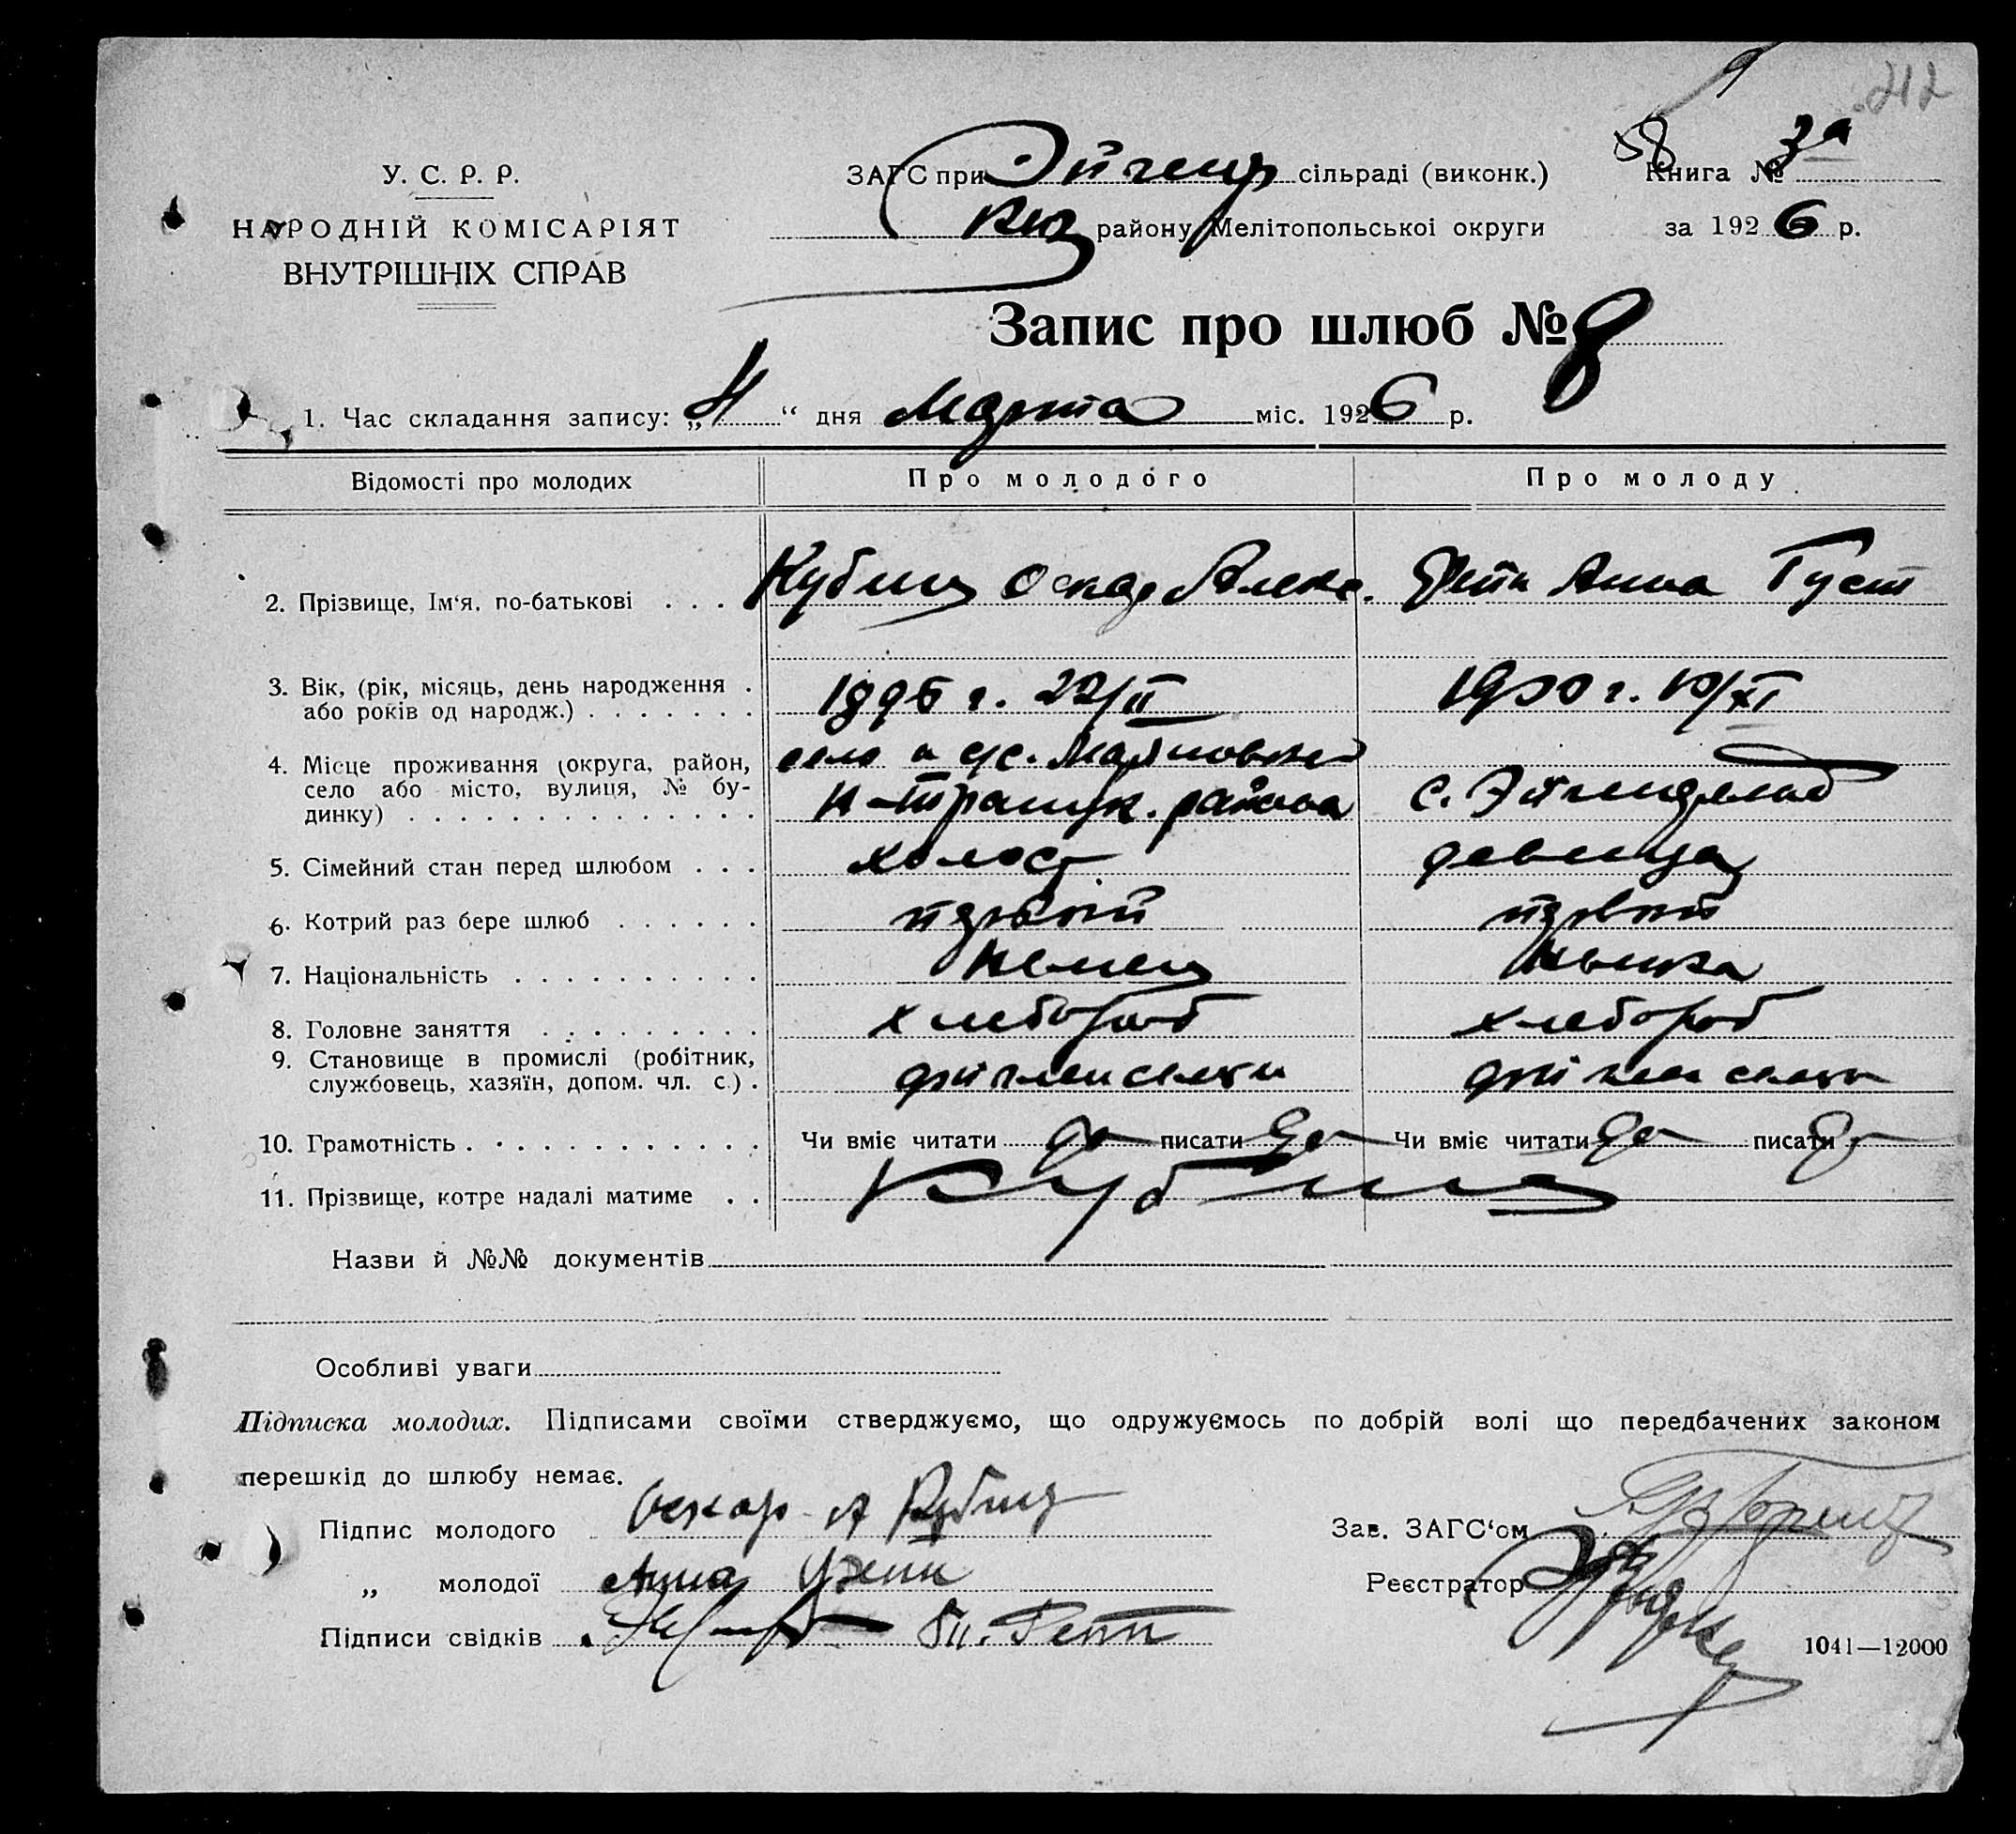 212
58
У. С. Р. Р.
ЗАГС при Эйгенф сільраді (виконк.) Книга № 3а
НАРОДНІЙ КОМІСАРІЯТ
району Мелітопольської округи за 1926 р.
ВНУТРІШНІХ СПРАВ
Запис про шлюб № 8
1. Час складання запису: „4“ дня Марта міс. 1926 р.
Відомості про молодих Про молодого Про молоду
2. Прізвище, Ім‘я, по-батькові . . . Кубиц Оскар Алекс. Анна Густ
3. Вік, (рік, місяць, день народження .
або років од народж.) . . . . . . . 1895 г. 22/II 1900 г. 10/XI
4. Місце проживання (округа, район, село
село або місто, вулиця, № бу- района с. Эйгенфельд
динку) . . . . . . . . . . . . . .
5. Сімейний стан перед шлюбом . . . холост девица
6. Котрий раз бере шлюб . . . . . . первый первый
7. Національність . . . . . . . . . . Немец Немка
8. Головне заняття . . . . . . . . . хлебороб хлебороб
9. Становище в промислі (робітник,
службовець, хазяїн, допом. чл. с.) . член семьи член семьи
10. Грамотність . . . . . . . . . . . . Чи вміє читати да писати да Чи вміє читати да писати да
11. Прізвище, котре надалі матиме . . Кубиц
Назви й №№ документів
Особливі уваги
Підписка молодих. Підписами своїми стверджуємо, що одружуємось по добрій волі що передбачених законом
перешкід до шлюбу немає.
Підпис молодого Оскар А Кубиц Зав. ЗАГС‘ом
„ молодої Анна Реєстратор
Підписи свідків
1041—12000